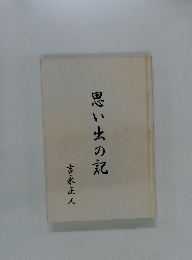 思い出の記
吉永正人